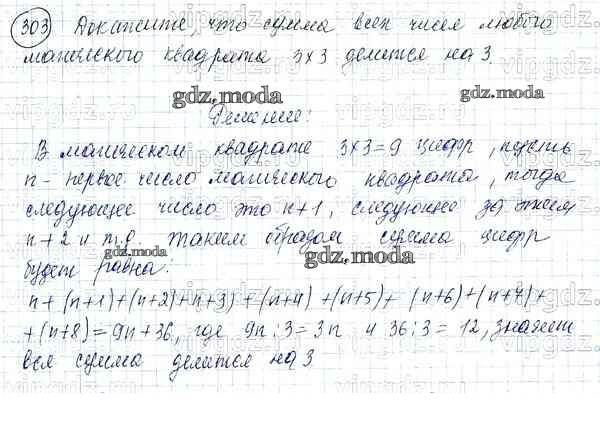 303 Докажите, что сумма всех чисел любого
магического квадрата 3×3 делится на 3.
gdz.moda gdz.moda
Решение:
В магическом квадрате 3×3=9 цифр, пусть
n - первое число магического квадрата, тогда
следующее число это n+1, следующее за этим
n+2 и т.д. Таким образом сумма цифр
gdz.moda gdz.moda
будет равна:
n+(n+1)+(n+2)+n+3)+(n+4)+(n+5)+(n+6)+(n+7)+
+(n+8)=9n+36, где 9n:3=3n и 36:3=12, значит
вся сумма делится на 3